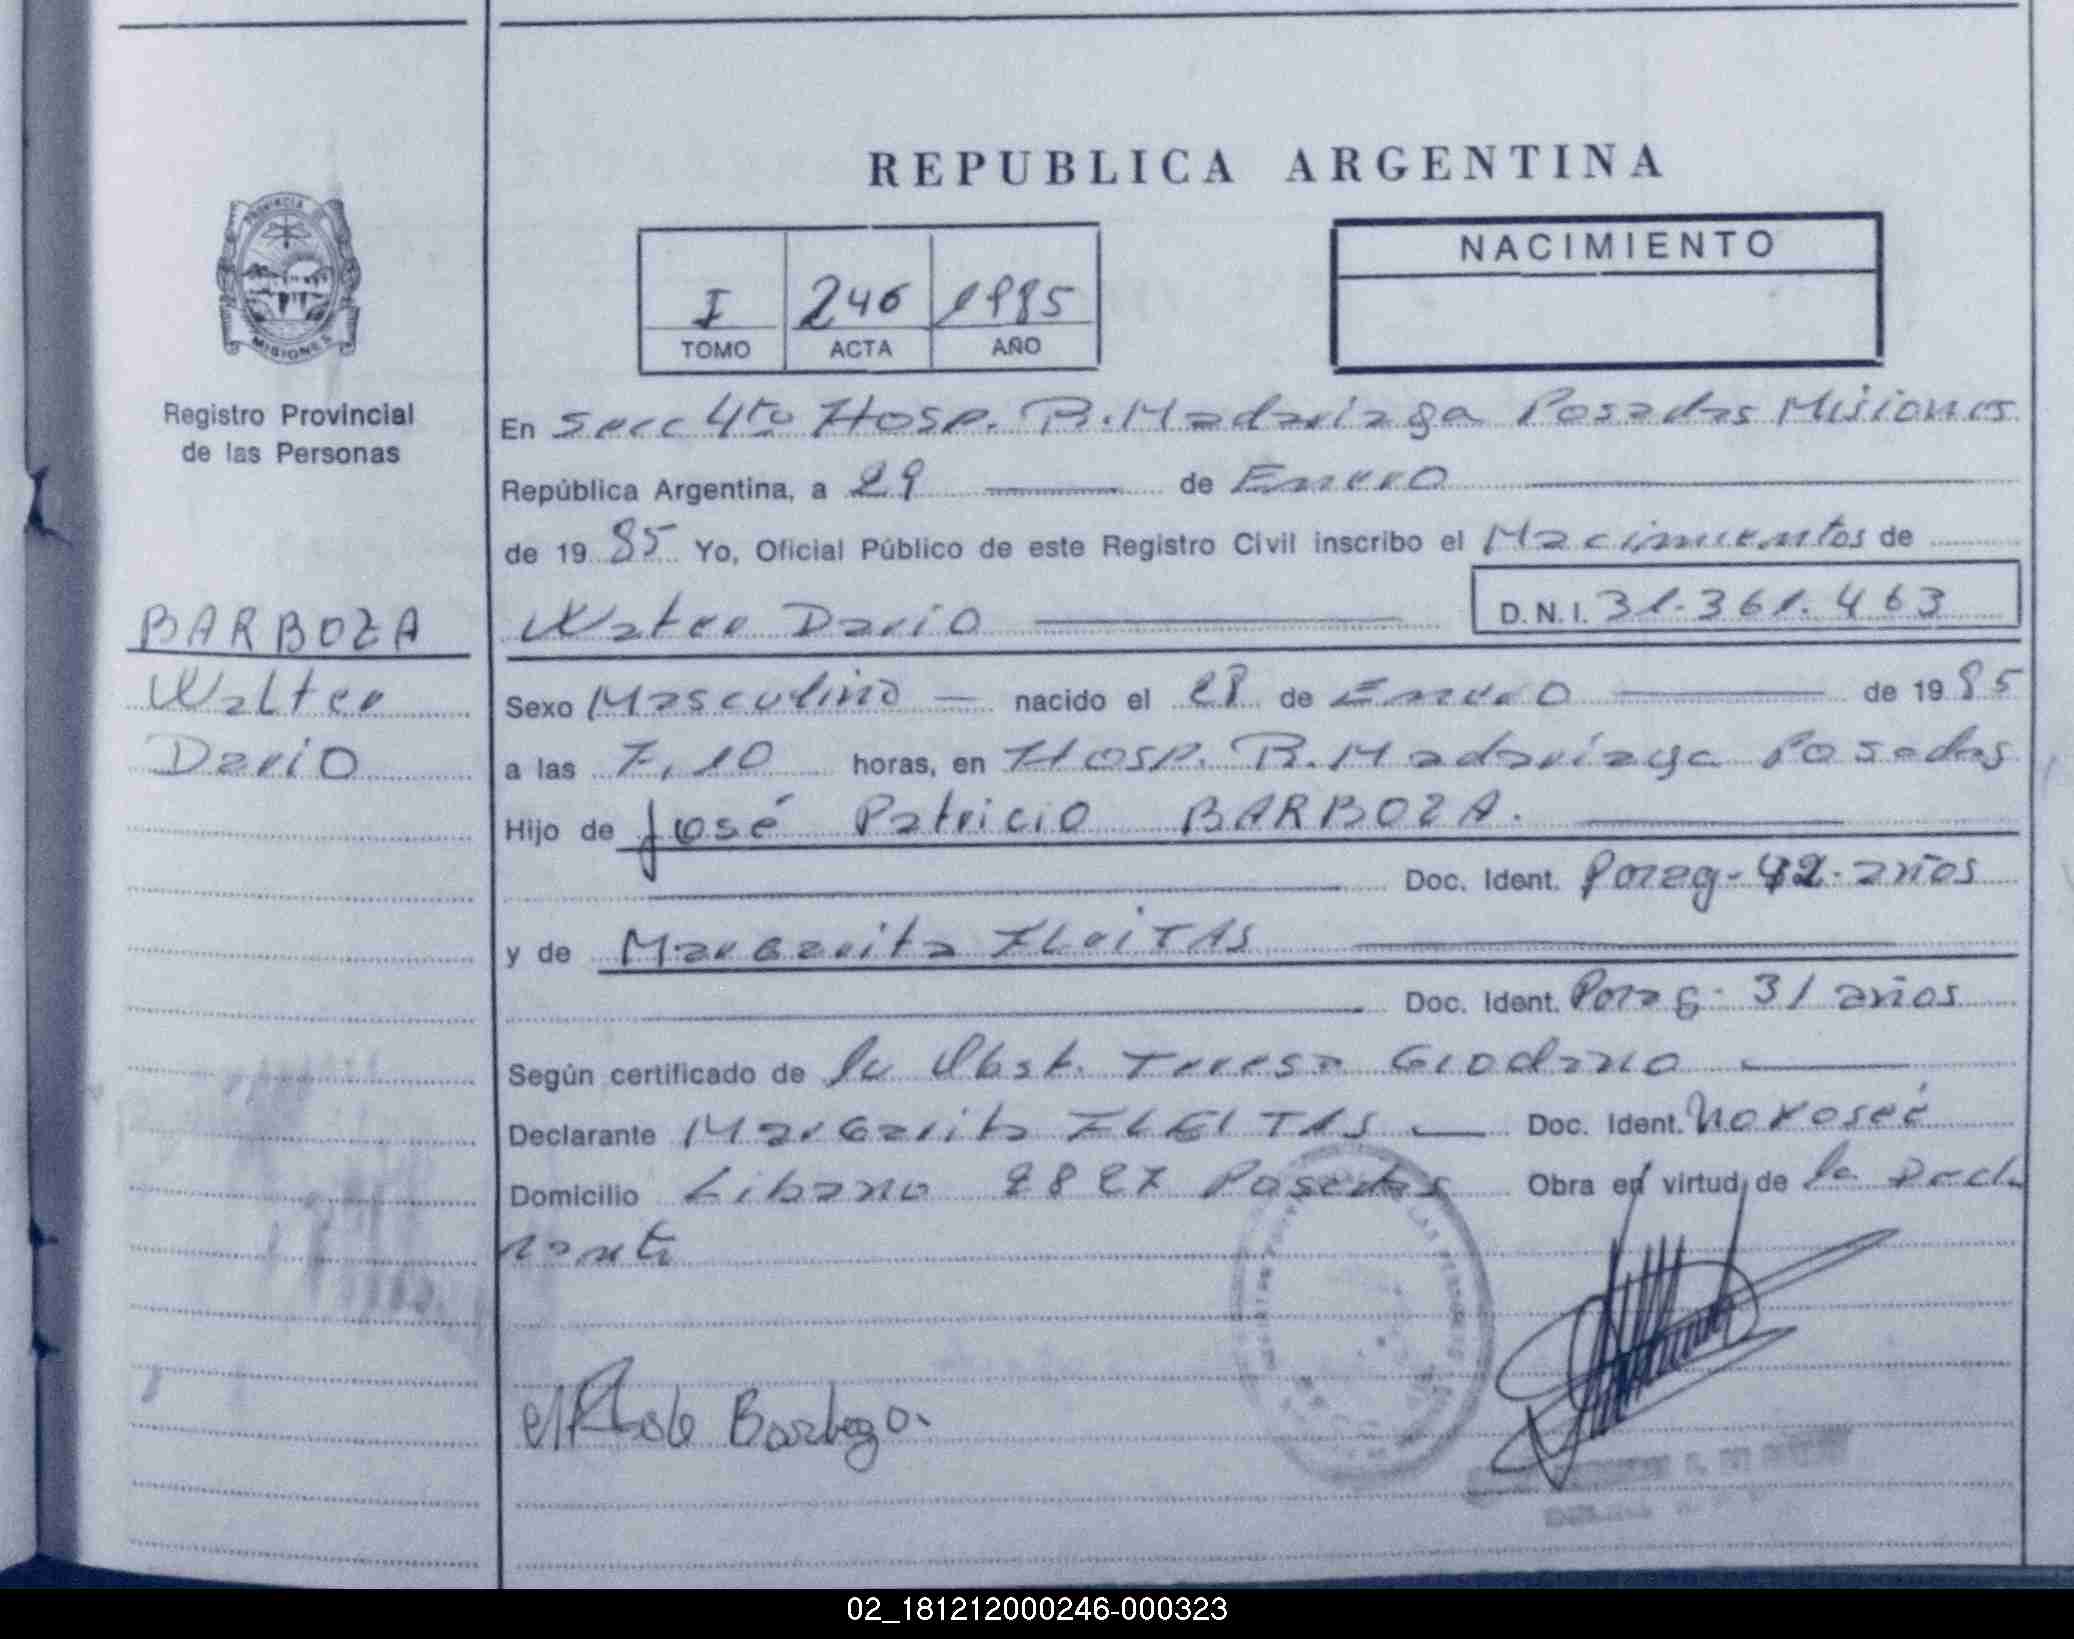 REPUBLICA ARGENTINA
PROVINCIA DE
MISIONES
Registro Provincial
de las Personas
I 246 1985
TOMO ACTA AÑO
NACIMIENTO
En Secc 4to Hosp. R. Madariaga Posadas Misiones
República Argentina, a 29 de Enero
de 1985 Yo, Oficial Público de este Registro Civil inscribo el Nacimientos de
BARBOZA
Walter
Dario
Walter Dario D.N.I. 31.361.463
Sexo Masculino nacido el 28 de Enero de 1985
a las 7,10 horas, en Hosp. R. Madariaga Posadas
Hijo de José Patricio BARBOZA.
Doc. Ident. Parag- 42- años
y de Margarita FLEITAS
Doc. Ident. Parag- 31 años
Según certificado de la Obst. Teresa
Declarante Margarita FLEITAS Doc. Ident. No Poseé
Domicilio Libano 2827 Posadas Obra en virtud de la Decla
rante
02_181212000246-000323